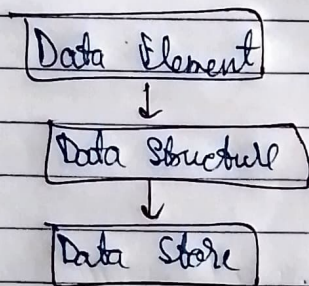 Data Element
Data Structure
Data Store